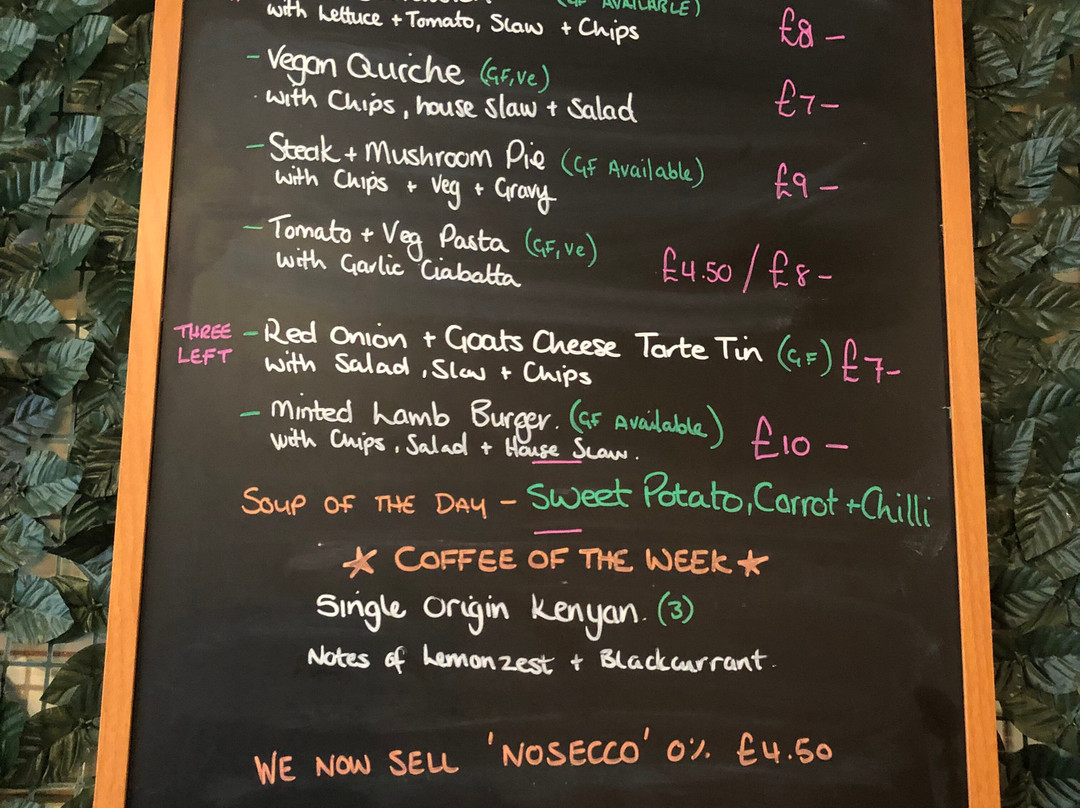 AVAILABLE)
with Lettuce + Tomato, Slaw + Chips £8 –
– Vegan Quiche (GF, Ve)
with Chips, house Slaw + Salad £7 –
– Steak + Mushroom Pie (GF Available)
with Chips + Veg + Gravy £9 –
– Tomato + Veg Pasta (GF, Ve)
with Garlic Ciabatta £4.50 / £8 –
THREE LEFT – Red Onion + Goats Cheese Tarte Tin (GF) £7 –
with Salad, Slaw + Chips
– Minted Lamb Burger. (GF Available) £10 –
with Chips, Salad + House Slaw.
SOUP OF THE DAY – Sweet Potato, Carrot + Chilli
★ COFFEE OF THE WEEK ★
Single Origin Kenyan. (3)
Notes of Lemonzest + Blackcurrant.
WE NOW SELL 'NOSECCO' 0% £4.50